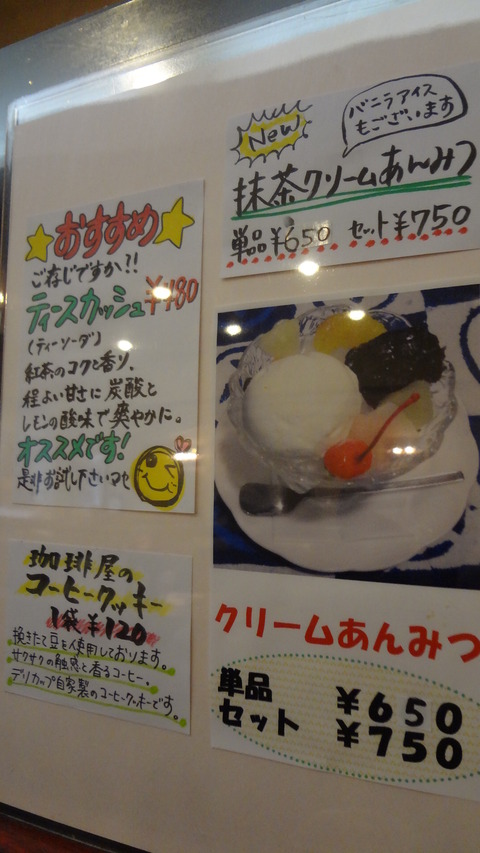 New
バニラアイス
もございます
抹茶クリームあんみつ
単品¥650 セット¥750
おすすめ
ご存じですか?!
ティースカッシュ ¥480
(ティーソーダ)
紅茶のコクと香り、
程よい甘さに炭酸と
レモンの酸味で爽やかに。
オススメです!
是非お試し下さいませ
珈琲屋の
コーヒークッキー
1袋¥120
挽きたて豆を使用しております。
サクサクの触感と香るコーヒー。
デリカップ自家製のコーヒークッキーです。
クリームあんみつ
単品 ¥650
セット ¥750